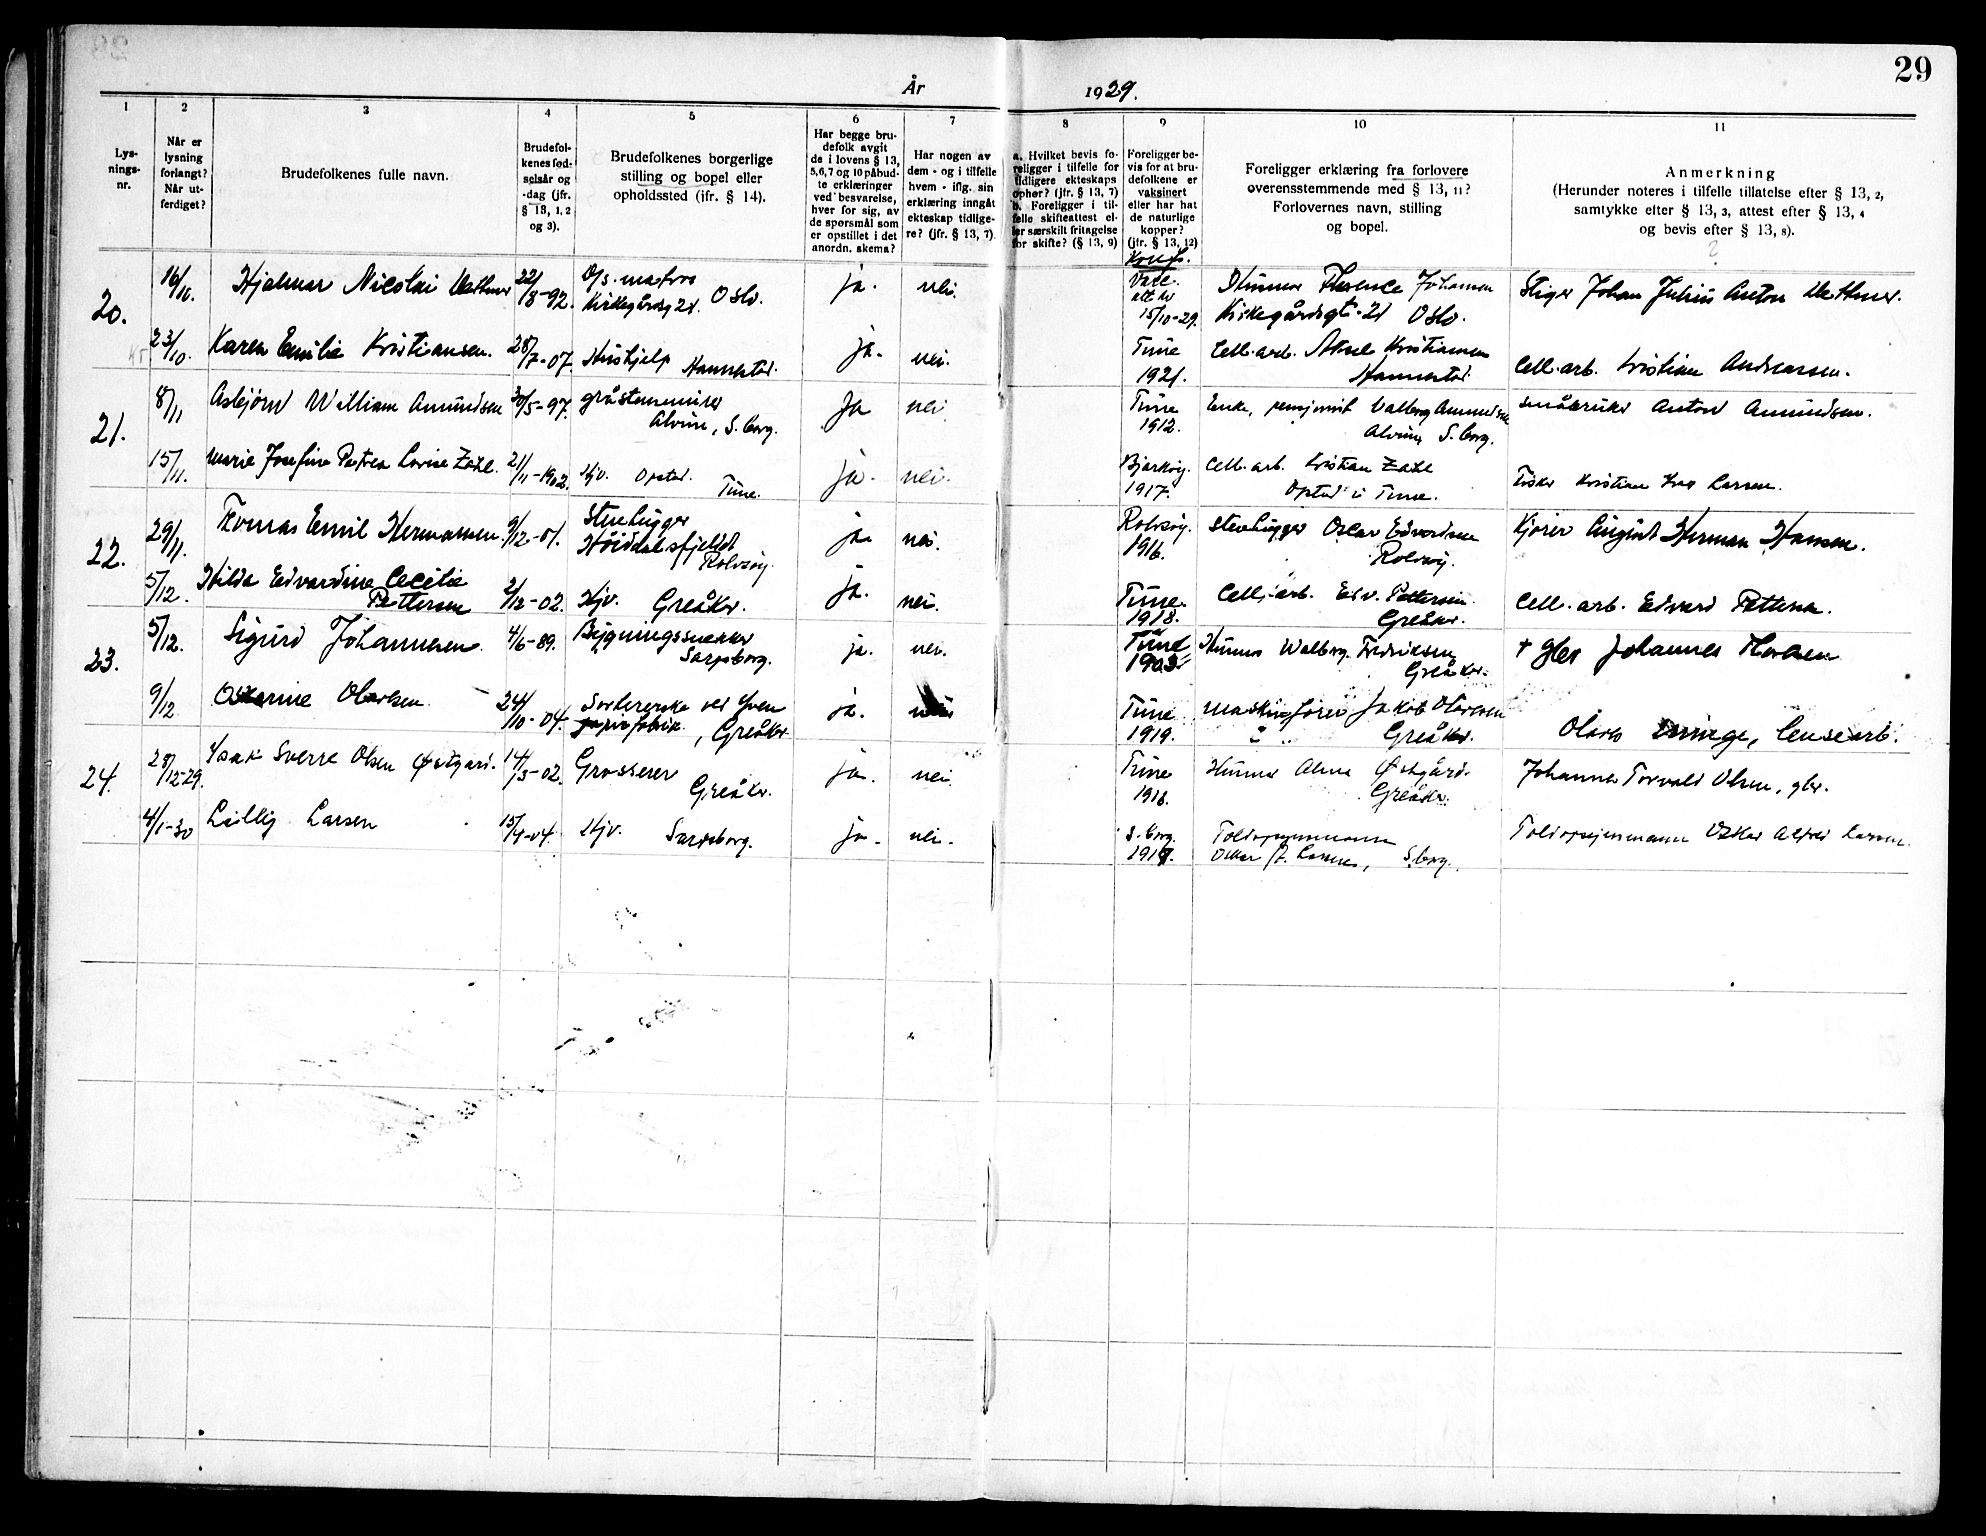 29
År 1929.
1 2 3 4 5 6 7 8 9 10 11
Lysnings-nr.
Når er lysning forlangt? Når utferdiget?
Brudefolkenes fulle navn.
Brudefolkenes fødselsår og -dag (jfr. § 13, 1, 2 og 3).
Brudefolkenes borgerlige stilling og bopel eller opholdssted (jfr. § 14).
Har begge brudefolk avgit de i lovens § 13, 5, 6, 7 og 10 påbudte erklæringer ved besvarelse, hver for sig, av de spørsmål som er opstillet i det anordn. skema?
Har nogen av dem - og i tilfelle hvem - iflg. sin erklæring inngåt ekteskap tidligere? (jfr. § 13, 7).
a. Hvilket bevis foreligger i tilfelle for tidligere ekteskaps ophør? (jfr. § 13, 7) b. Foreligger i tilfelle skifteattest eller særskilt fritagelse for skifte? (§ 13, 9)
Foreligger bevis for at brudefolkene er vaksinert eller har hat de naturlige kopper? (jfr. § 13, 12)
Foreligger erklæring fra forlovere overensstemmende med § 13, 11? Forlovernes navn, stilling og bopel.
Anmerkning (Herunder noteres i tilfelle tillatelse efter § 13, 2, samtykke efter § 13, 3, attest efter § 13, 4 og bevis efter § 13, 8).
20. 16/10. Hjalmar Nicolai 22/8-92. matros Kirkegårdsg 21. Oslo. ja. nei. 15/10-29. Florence Johansen Kirkegårdsgt. 21 Oslo. Stiger Johan Julius Anton
23/10. Karen Emilie Kristiansen. 28/7-07. Hushjelp Hannestad. ja. nei. Tune 1921. Cell. arb. Aksel Kristiansen Hannestad. Cell. arb. Kristian Andreassen.
21. 8/11 Asbjörn William Amundsen 30/5-97. gråstensmurer Alvim, S.borg. ja nei Tune 1912. Enke, Valborg Amundsen Alvim, S.borg. småbruker Anton Amundsen.
15/11. Marie Josefine Petrea Lovise Zahl. 21/11-1902. Hjv. Opstad. Tune. ja. nei. Bjarköy. 1917. Cell. arb. Kristian Zahl Opstad i Tune. Fisker Kristian Larsen.
22. 29/11. Thomas Emil Hermansen. 9/12-01. Stenhugger Höiddalsfjeldet Rolvsöy. ja nei. Rolvsöy. 1916. Stenhugger Oscar Edvardsen Rolvsöy. Kjörer August Herman Hansen.
5/12. Hilda Edvardine Cecilie Pettersen 2/12-02. Hjv. Greåker. ja. nei. Tune. 1918. Cell. arb. Edv. Pettersen. Greåker. Cell. arb. Edvard Pettersen.
23. 5/12. Sigurd Johannesen. 4/6-89. Bygningssnekker Sarpsborg. ja. nei. Tune 1903. Walborg Fredriksen Greåker. † gbr Johannes
9/12 Oskarine Olavesen 24/10-04. Sortererske ved papirfabrik, Greåker ja. nei Tune 1919. maskinförer Jakob Olavesen Greåker. Olaves Minge, lensearb.
24. 28/12-29. Isak Sverre Olsen Østgård. 14/3-02. Grosserer Greåker. ja. nei Tune 1918. Alma Østgård. Greåker. Johannes Torvald Olsen, gbr.
4/1-30 Lilly Larsen 15/4-04. Hjv. Sarpsborg. ja. nei. S.borg. 1917. Toldopsynsmann Oskar A. Larsen, S.borg. Toldopsynsmann Oskar Alfred Larsen